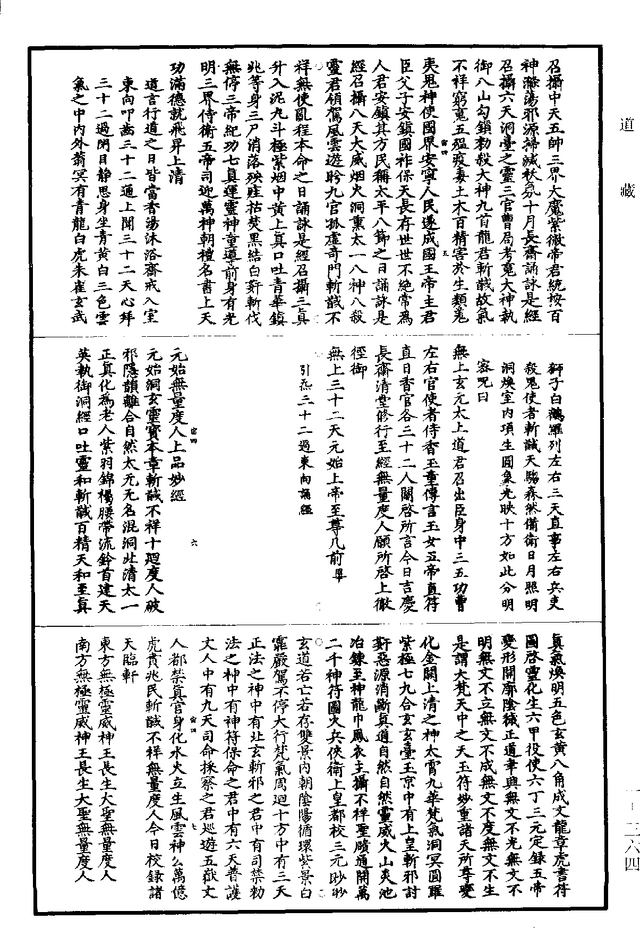 道藏
召攝中天五帥三界大魔紫微帝君統按百
神滌蕩邪源掃滅妖氛十月長齋誦詠是經
召攝六天洞臺之靈三官曹局考鬼大神執
御八山勾鎖勑殺大神九首龍君斬馘故氣
不祥窮鬼五瘟疫毒土木百精害於生類鬼
夷鬼神使國界安寧人民遂成國王帝主君
臣父子安鎮國祚保天長存世世不絕常爲
人君安鎮其方民稱太平八節之日誦詠是
經召攝八天大威烟火洞熏太一八神八殺
靈君傾駕風雲遊盻九官孤虛奇門斬馘不
祥無使亂程本命之日誦詠是經召攝三眞
升入泥九斗極紫烟中黃上眞口吐青華鎮
兆等身三尸消落殃蛀枯焚黑結白薪斬伐
無停三帝紀功七眞運靈神童導前身有光
明三界侍衛五帝司迎萬神朝禮名書上天
功滿德就飛昇上清
道言行道之日皆當香湯沐浴齋戒入室
東向叩齒三十二通上聞三十二天心拜
三十二過閉目靜思身坐青黃白三色雲
氣之中內外蓊冥有青龍白虎朱雀玄武
獅子白鶴羅列左右三天直事左右兵吏
殺鬼使者斬馘天騶森然備衛日月照明
洞煥室內項生圓象光映十方如此分明
密呪曰
無上玄元太上道君召出臣身中三五功曹
左右官使者侍香玉童傳言玉女五帝直符
直日香官各三十二人關啓所言今日吉慶
長齋清堂修行至經無量度人願所啓上徹
徑御
無上三十二天元始上帝至尊几前畢
引炁三十二過東向誦經
元始無量度人上品妙經
元始洞玄靈寶本章斬馘不祥十迴度人破
邪隱韻離合自然太元無名混洞北清太一
正眞化爲老人紫羽錦楊腰帶流鈴首建天
英執御洞經口吐靈和斬馘百精天和至眞
眞氣煥明五色玄黃八角成文龍章虎書符
圖啓靈化生六甲役使六丁三元定錄五帝
變形開廓陰穢正道聿興無文不光無文不
明無文不立無文不成無文不度無文不生
是謂大梵天中之天玉符妙重諸天所尊變
化金闕上清之神太霄九華梵氣洞冥圓羅
紫極七九合玄玄臺玉京中有上皇斬邪討
姦惡源消斷眞道自然自然靈威火山炎池
冶鍊至神龍巾鳳衣主攝不祥聖曠通開萬
二千神符國火兵俠衛上皇都校三元眇眇
玄道若亡若存雙景內朝陰陽循環紫景白
竈嚴駕不停大行梵氣周迴十方中有三天
正法之神中有北玄斬邪之君中有司禁勑
法之神中有神符保命之君中有六天普護
丈人中有九天司命採察之君巡遊五嶽丈
人都禁眞官身化水火立生風雲神公萬億
虎賁兆民斬馘不祥無量度人今日校錄諸
天臨軒
東方無極靈威神王長生大聖無量度人
南方無極靈威神王長生大聖無量度人
一-三六四